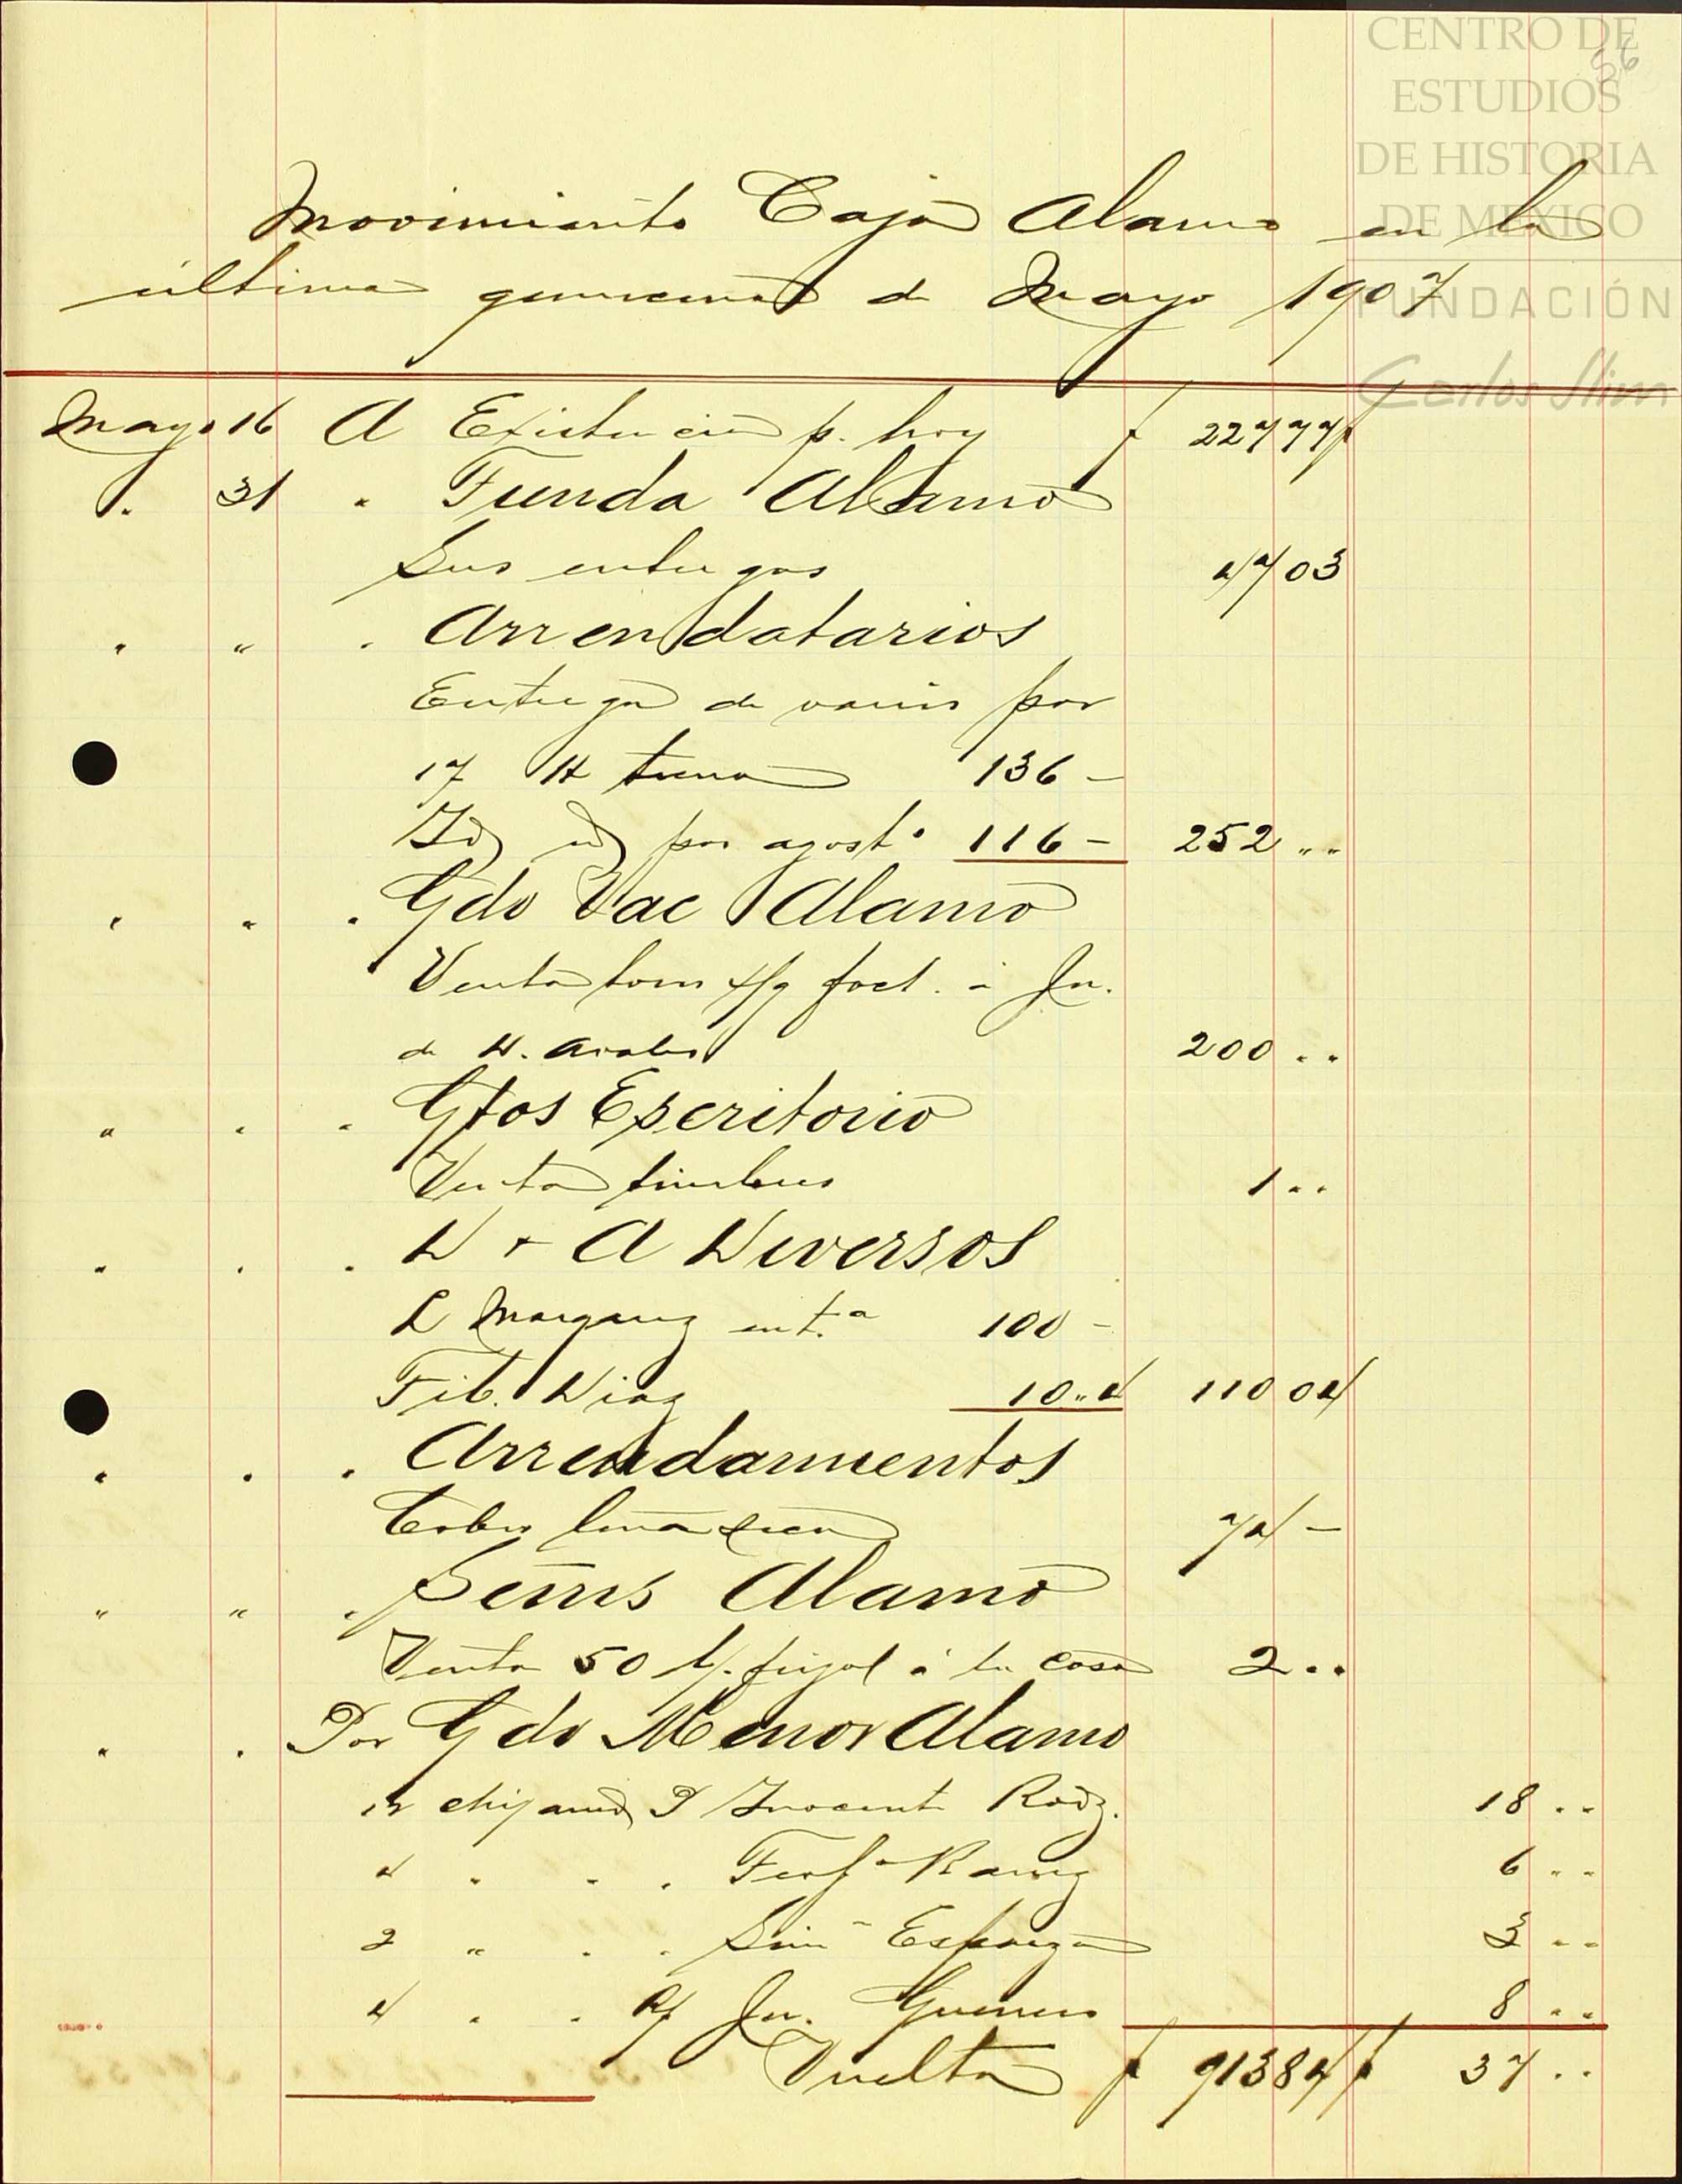 CENTRO DE
ESTUDIOS
DE HISTORIA
DE MEXICO
FUNDACIÓN
Carlos Slim
56
Movimiento Caja Alamo en la
última quincena de Mayo 1907
Mayo 16 A Existencia p. hoy $ 227 77 $
" 31 " Tienda Alamo
Sus entregas 47 03
" " " Arrendatarios
Entrega de varios por
17 H tuna 136 -
Id id por agosto 116 - 252 " "
" " " Gdo Vac Alamo
Venta toros s/g fact. á Jn.
de D. Avalos 200 " "
" " " Gtos Escritorio
Venta timbres 1 " "
" " " D + A Diversos
L Marquez ent.a 100 -
Tib. Diaz 10 " 4 110 04
" " " Arrendamientos
Cobro leña seca 74 -
" " " Sem's Alamo
Venta 50 l/. frijol á la Casa 2 " "
" " Por Gdo Menor Alamo
12 chiyanud P Inocente Rodz. 18 " "
4 " " " Terfo Ramz 6 " "
2 " " " Simn Esparza 3 " "
4 " " Rf Jn. Guerrero 8 " "
Vuelta $ 913 84 $ 37 " "